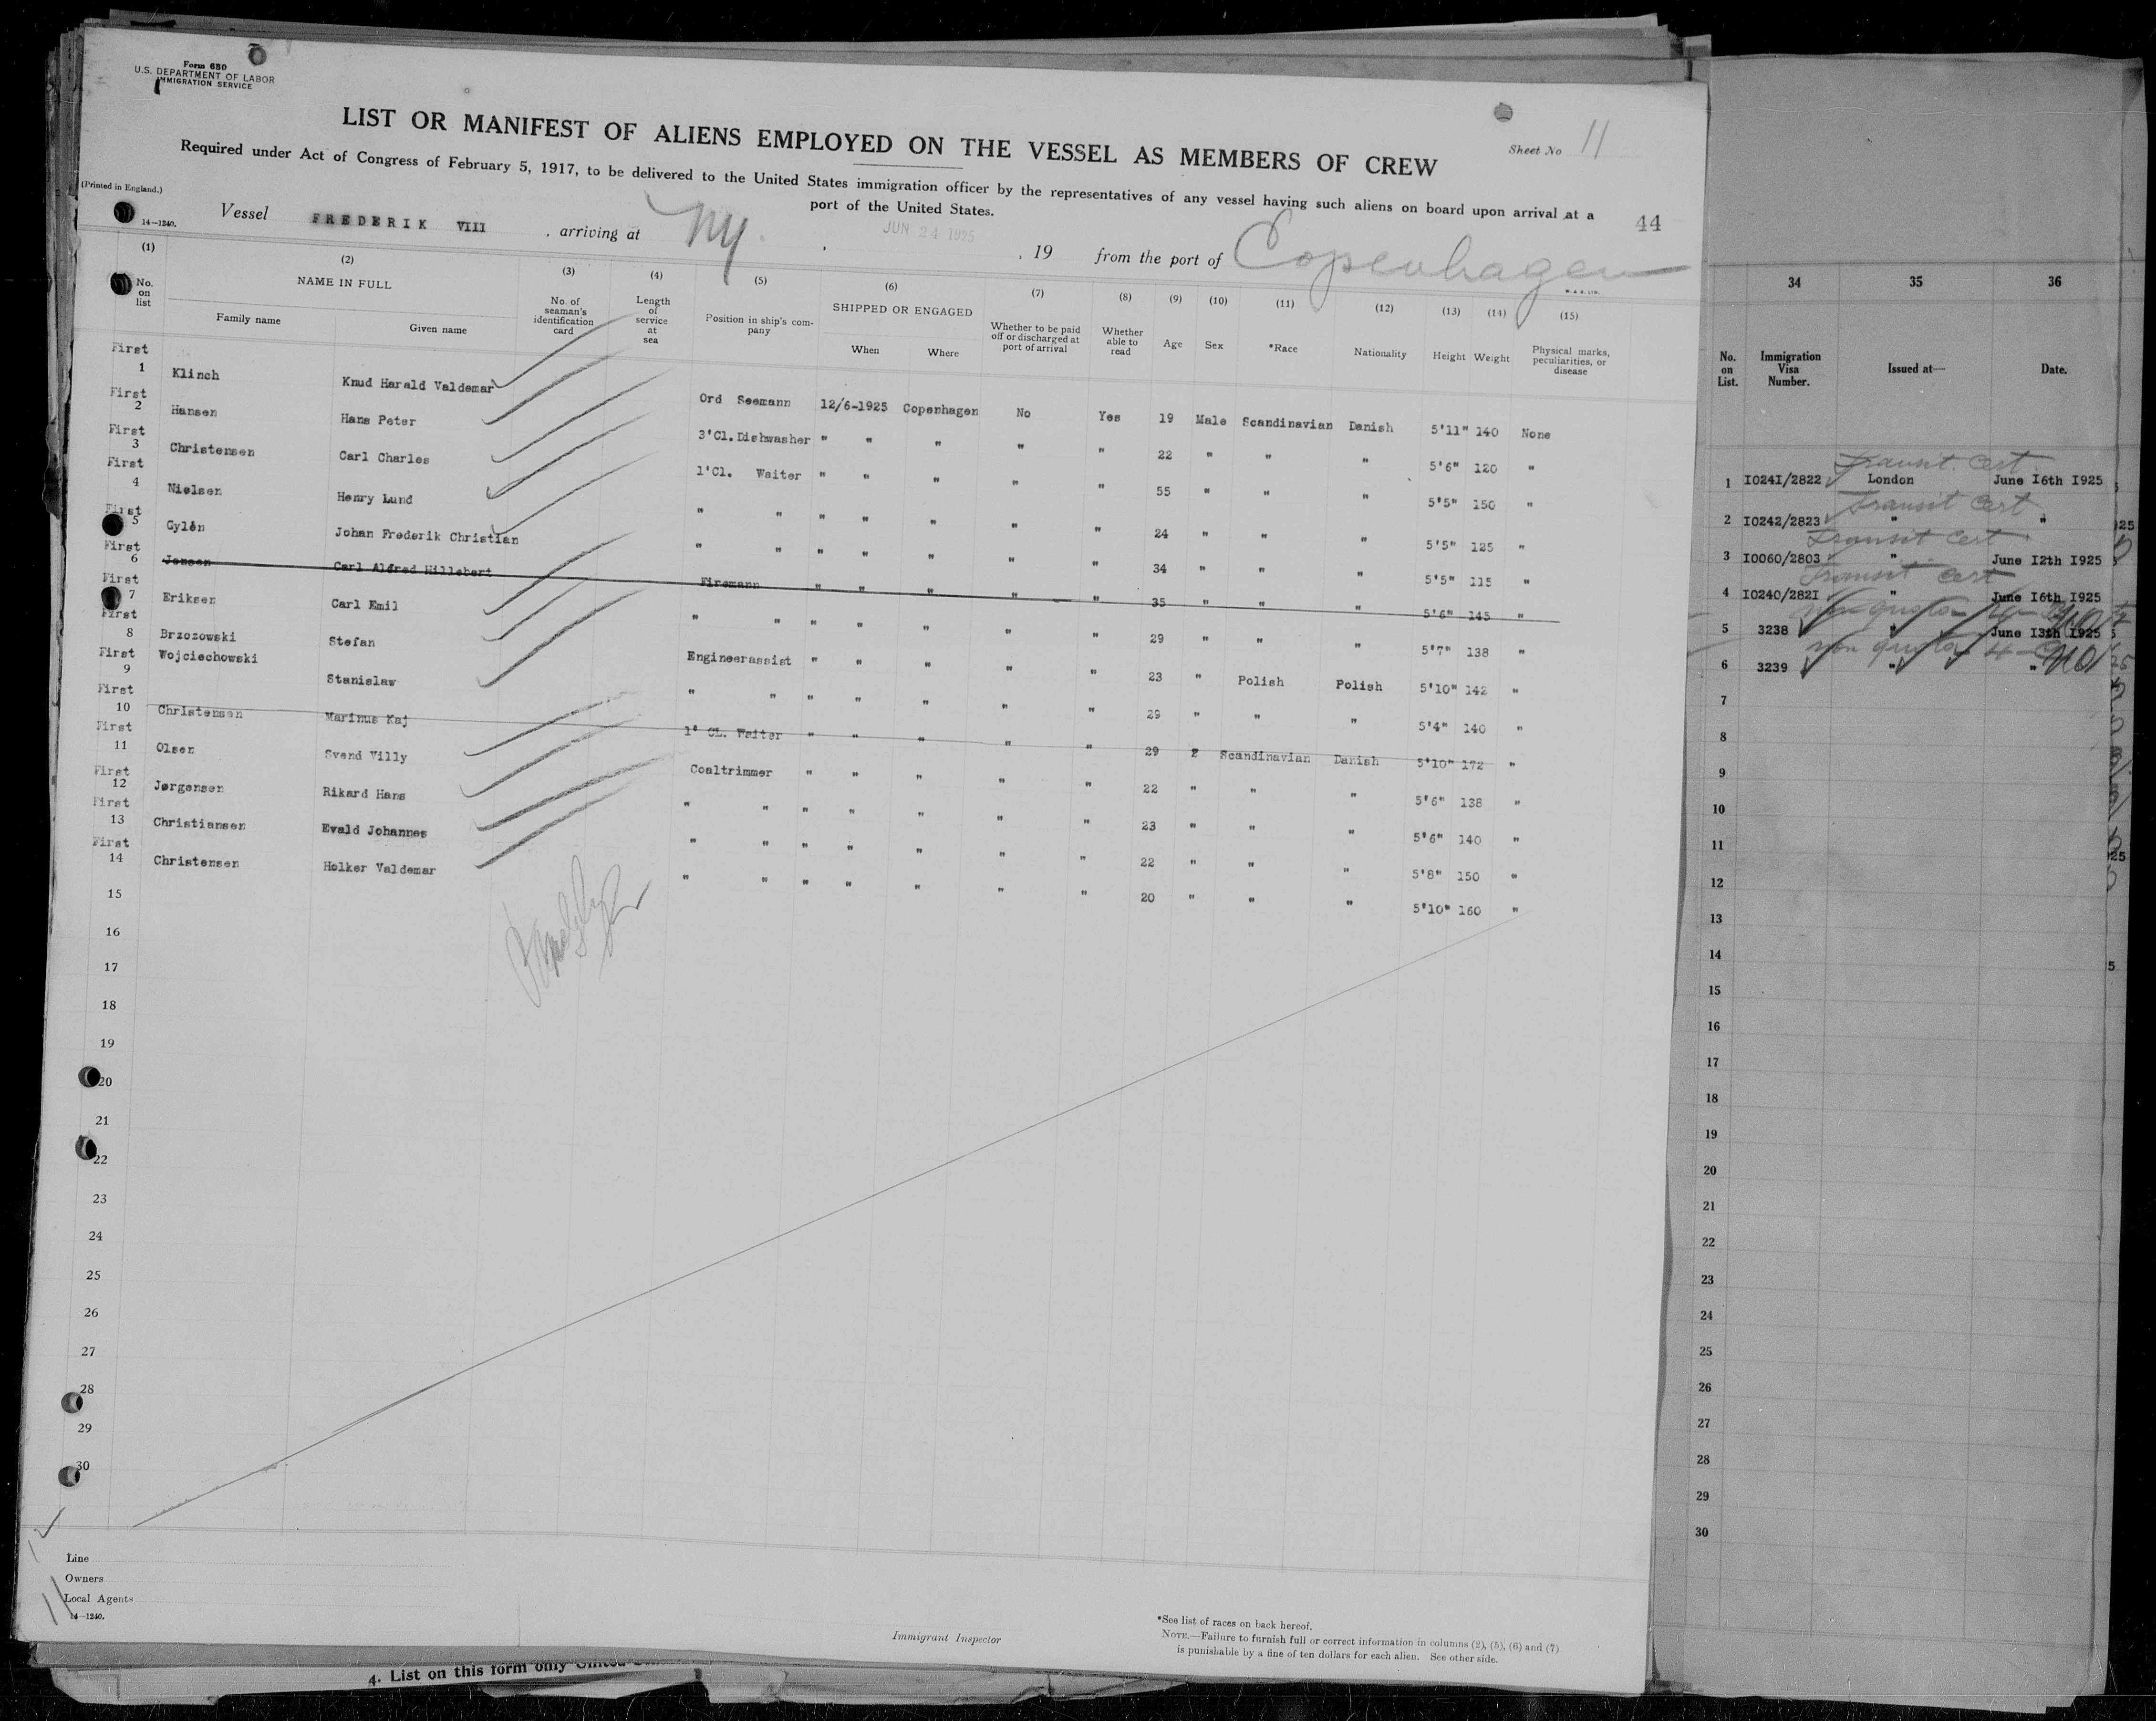 Form 680
U.S. DEPARTMENT OF LABOR
IMMIGRATION SERVICE
LIST OR MANIFEST OF ALIENS EMPLOYED ON THE VESSEL AS MEMBERS OF CREW
Sheet No 11
Required under Act of Congress of February 5, 1917, to be delivered to the United States immigration officer by the representatives of any vessel having such aliens on board upon arrival at a
port of the United States.
44
(Printed in England.)
14—1240.
Vessel FREDERIK VIII, arriving at NY. JUN 24 1925, 19 from the port of Copenhagen
(1) (2) (3) (4) (5) (6) (7) (8) (9) (10) (11) (12) (13) (14) (15)
No. on list NAME IN FULL Family name Given name No. of seaman's identification card Length of service at sea Position in ship's company SHIPPED OR ENGAGED When Where Whether to be paid off or discharged at port of arrival Whether able to read Age Sex *Race Nationality Height Weight Physical marks, peculiarities, or disease
First 1 Klinch Knud Harald Valdemar Ord Seemann 12/6-1925 Copenhagen No Yes 19 Male Scandinavian Danish 5'11" 140 None
First 2 Hansen Hans Peter 3'Cl. Dishwasher " " " " " 22 " " " 5'6" 120 "
First 3 Christensen Carl Charles 1'Cl. Waiter " " " " " 55 " " " 5'5" 150 "
First 4 Nielsen Henry Lund " " " " " " " 24 " " " 5'5" 125 "
First 5 Gylén Johan Frederik Christian " " " " " " " 34 " " " 5'5" 115 "
First 6 Jensen Carl Alfred Hillebert Firemann " " " " " 35 " " " 5'6" 145 "
First 7 Eriksen Carl Emil " " " " " " " 29 " " " 5'7" 138 "
First 8 Brzozowski Stefan Engineerassist " " " " " 23 " Polish Polish 5'10" 142 "
First 9 Wojciechowski Stanislaw " " " " " " " 29 " " " 5'4" 140 "
First 10 Christensen Marinus Kaj 1' CL. Waiter " " " " " 29 " Scandinavian Danish 5'10" 172 "
First 11 Olsen Svend Villy Coaltrimmer " " " " " 22 " " " 5'6" 138 "
First 12 Jørgensen Rikard Hans " " " " " " " 23 " " " 5'6" 140 "
First 13 Christiansen Evald Johannes " " " " " " " 22 " " " 5'8" 150 "
First 14 Christensen Holker Valdemar " " " " " " " 20 " " " 5'10" 160 "
15
16
17
18
19
20
21
22
23
24
25
26
27
28
29
30
Line
Owners
Local Agents
14—1240.
11
Immigrant Inspector
*See list of races on back hereof.
NOTE.—Failure to furnish full or correct information in columns (2), (5), (6) and (7)
is punishable by a fine of ten dollars for each alien. See other side.
4. List on this form only
34 35 36
No. on List. Immigration Visa Number. Issued at— Date.
Transit Cert
1 I024I/2822 London June I6th I925
Transit Cert
2 I0242/2823 " "
Transit Cert
3 I0060/2803 " June I2th I925
Transit Cert
4 I0240/282I " June I6th I925
non quota
5 3238 " June I3th I925
non quota
6 3239 " "
7
8
9
10
11
12
13
14
15
16
17
18
19
20
21
22
23
24
25
26
27
28
29
30